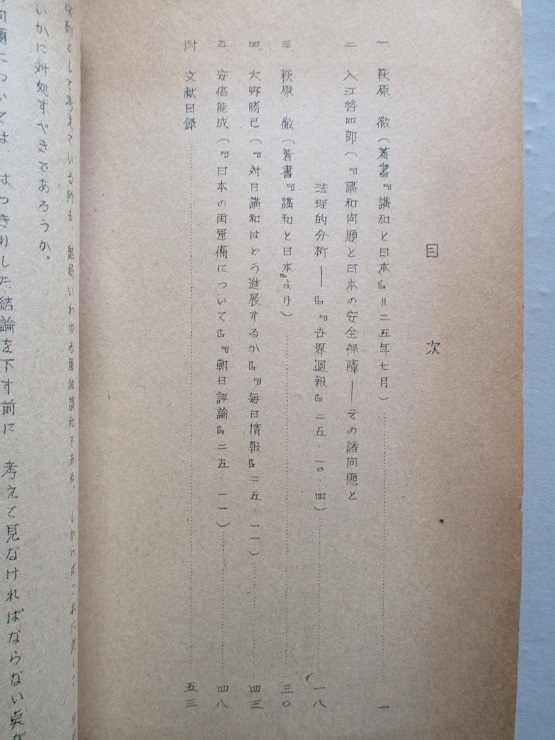 目次
一、萩原 徹(著書『講和と日本』=二五年七月)…一
二、入江啓四郎(『講和問題と日本の安全保障——その諸問題と
法理的分析——』『世界週報』二五・一〇・四)…一八
三、萩原 徹(著書『講和と日本』より)…三〇
四、大野勝巳(『対日講和はどう進展するか』『毎日情報』二五・一一)…四三
五、安倍能成(『日本の再軍備について』『朝日評論』二五・一一)…四八
附、文献目録…五三
いかに対処すべきであろうか。
はっきりした結論を下す前に 考えて見なければならない